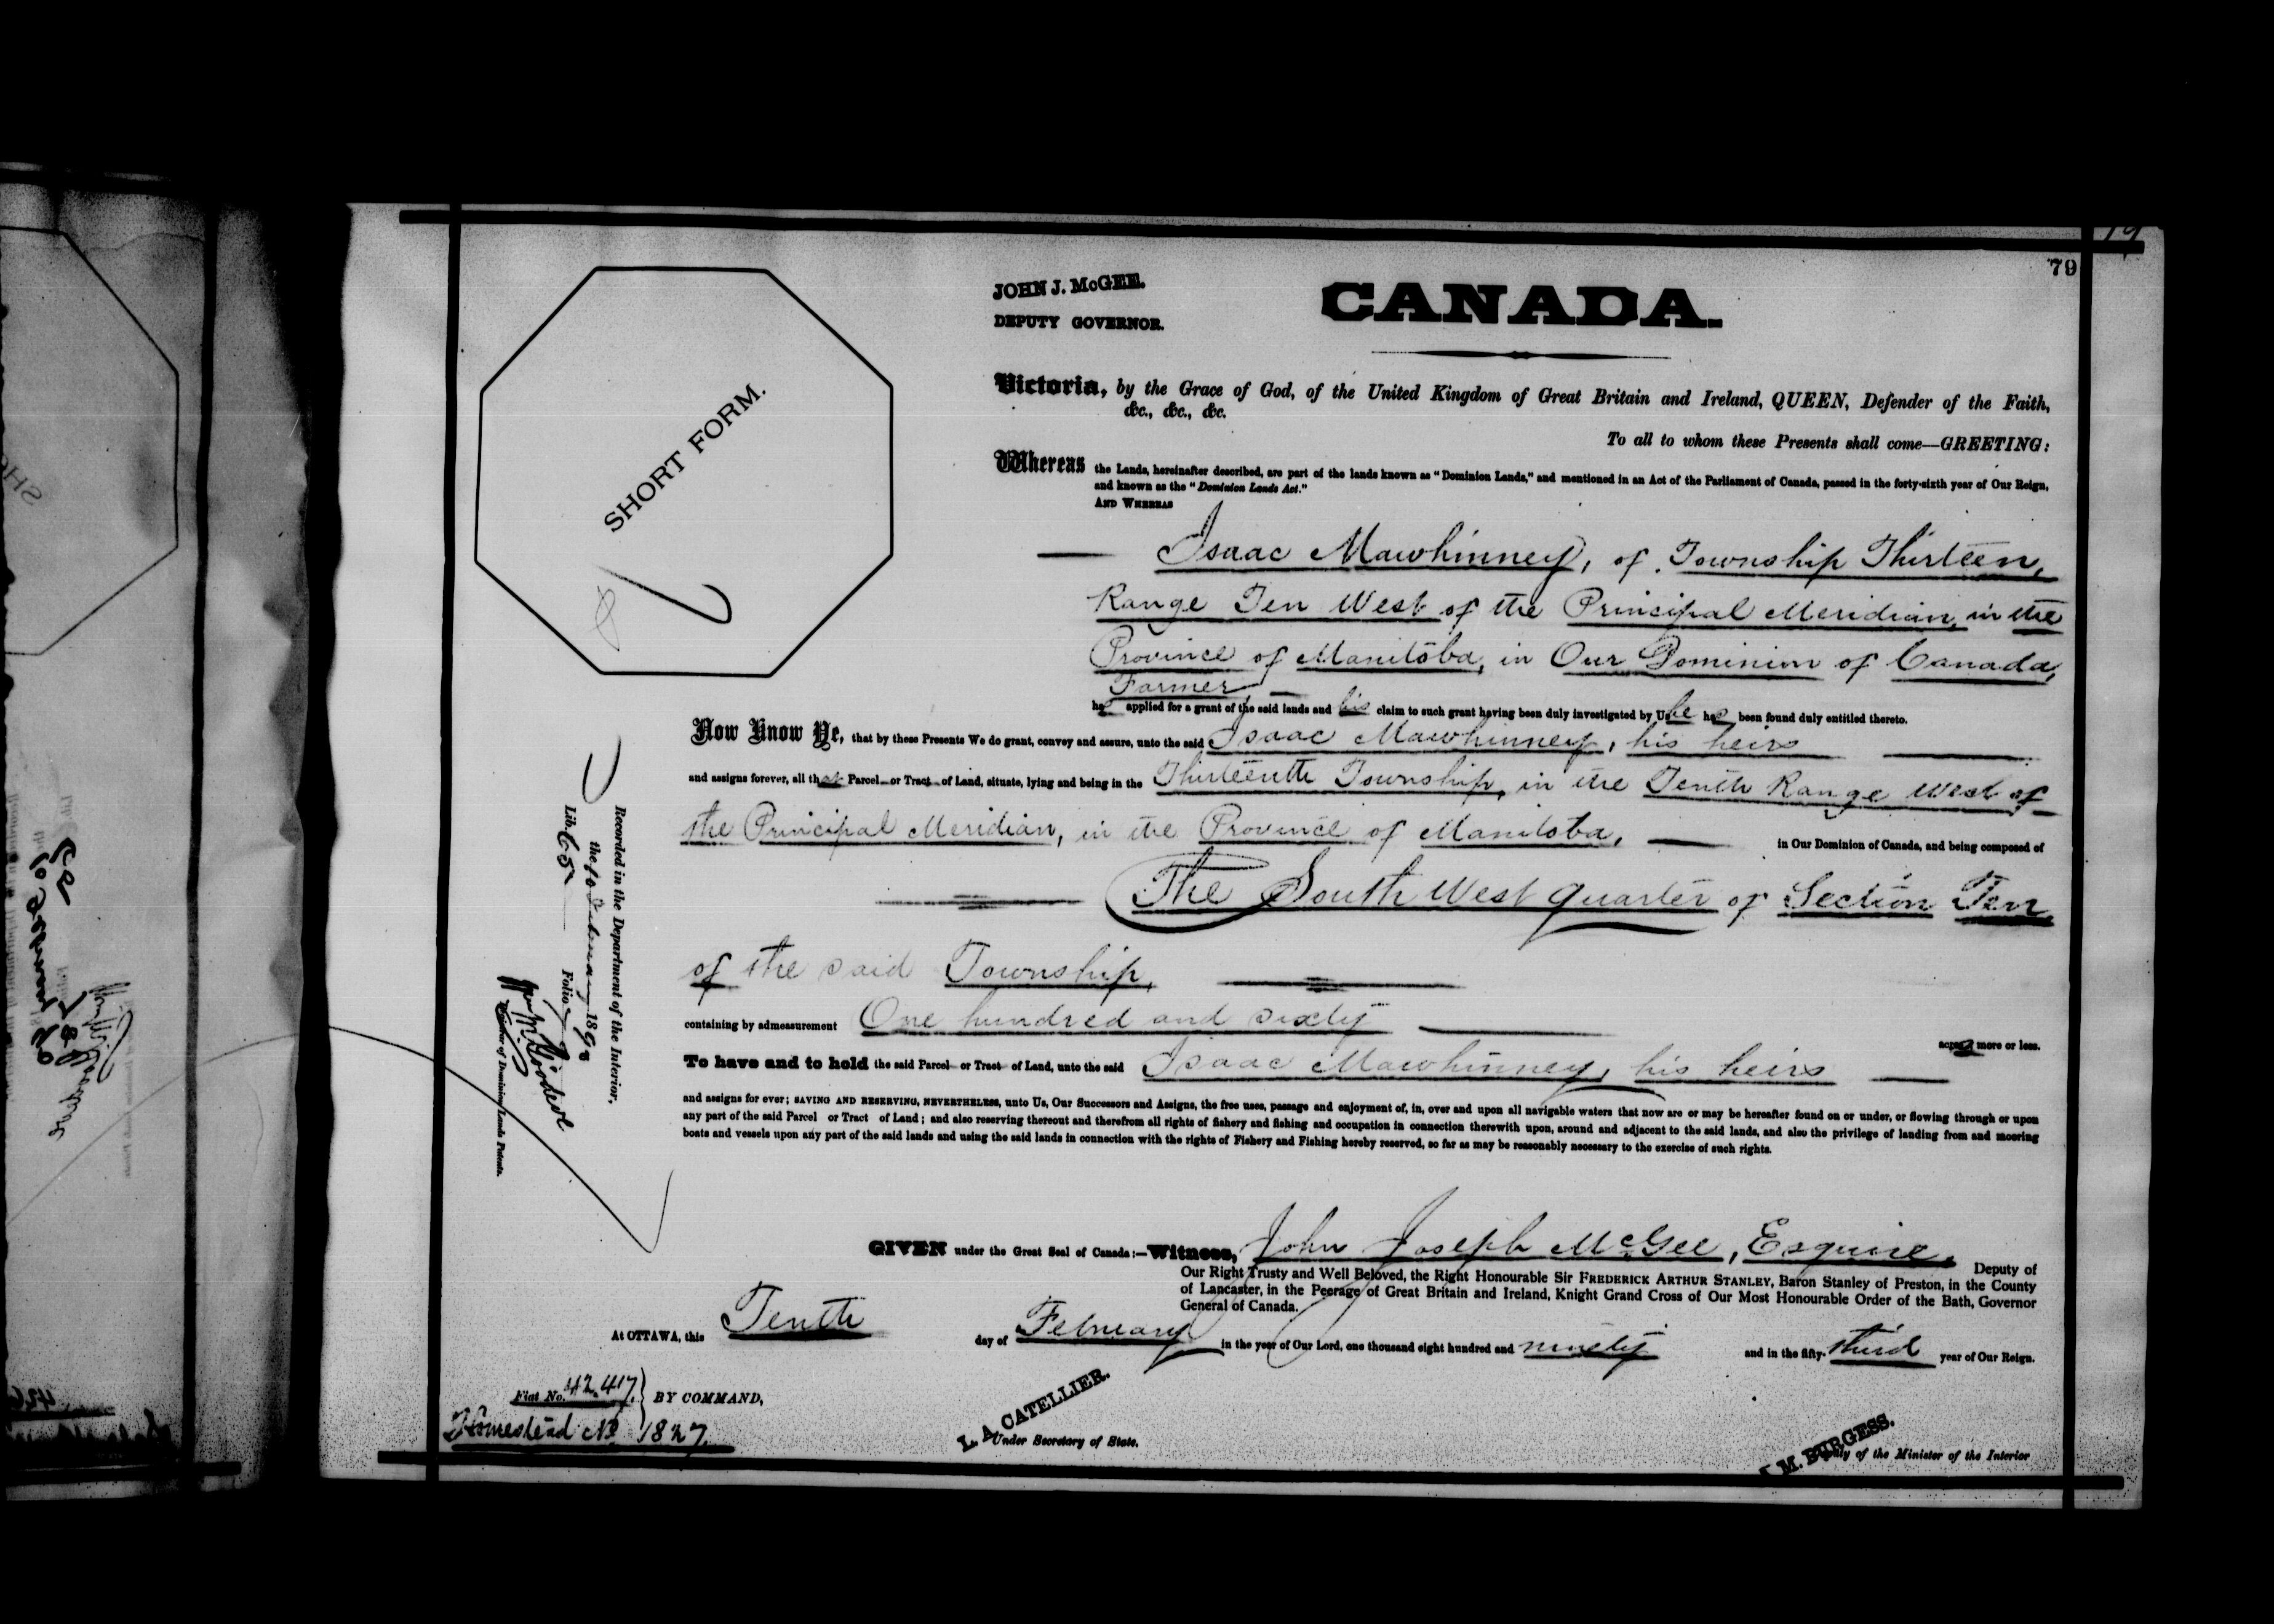 79
JOHN J. McGEE.
DEPUTY GOVERNOR.
CANADA.
SHORT FORM.
Victoria, by the Grace of God, of the United Kingdom of Great Britain and Ireland, QUEEN, Defender of the Faith,
&c., &c., &c.
To all to whom these Presents shall come—GREETING:
Whereas the Lands, hereinafter described, are part of the lands known as "Dominion Lands," and mentioned in an Act of the Parliament of Canada, passed in the forty-sixth year of Our Reign,
and known as the "Dominion Lands Act."
AND WHEREAS
Isaac Mawhinney, of Township Thirteen,
Range Ten West of the Principal Meridian, in the
Province of Manitoba, in Our Dominion of Canada,
Farmer,
has applied for a grant of the said lands and his claim to such grant having been duly investigated by Us he has been found duly entitled thereto.
Now Know Ye, that by these Presents We do grant, convey and assure, unto the said Isaac Mawhinney, his heirs
and assigns forever, all that Parcel or Tract of Land, situate, lying and being in the Thirteenth Township, in the Tenth Range West of
the Principal Meridian, in the Province of Manitoba, in Our Dominion of Canada, and being composed of
The South West quarter of Section Ten,
of the said Township,
containing by admeasurement One hundred and sixty
acres more or less.
To have and to hold the said Parcel or Tract of Land, unto the said Isaac Mawhinney, his heirs
and assigns for ever; SAVING AND RESERVING, NEVERTHELESS, unto Us, Our Successors and Assigns, the free uses, passage and enjoyment of, in, over and upon all navigable waters that now are or may be hereafter found on or under, or flowing through or upon
any part of the said Parcel or Tract of Land; and also reserving thereout and therefrom all rights of fishery and fishing and occupation in connection therewith upon, around and adjacent to the said lands, and also the privilege of landing from and mooring
boats and vessels upon any part of the said lands and using the said lands in connection with the rights of Fishery and Fishing hereby reserved, so far as may be reasonably necessary to the exercise of such rights.
Recorded in the Department of the Interior,
the February 189
Lib. 65 Folio
of Dominion Lands Patents.
GIVEN under the Great Seal of Canada:—Witness, John Joseph McGee, Esquire, Deputy of
Our Right Trusty and Well Beloved, the Right Honourable Sir FREDERICK ARTHUR STANLEY, Baron Stanley of Preston, in the County
of Lancaster, in the Peerage of Great Britain and Ireland, Knight Grand Cross of Our Most Honourable Order of the Bath, Governor
General of Canada.
At OTTAWA, this Tenth day of February in the year of Our Lord, one thousand eight hundred and ninety and in the fifty-third year of Our Reign.
Fiat No. 42417. BY COMMAND,
Homestead No 1827.
L. A. CATELLIER.
Under Secretary of State.
M. BURGESS.
of the Minister of the Interior